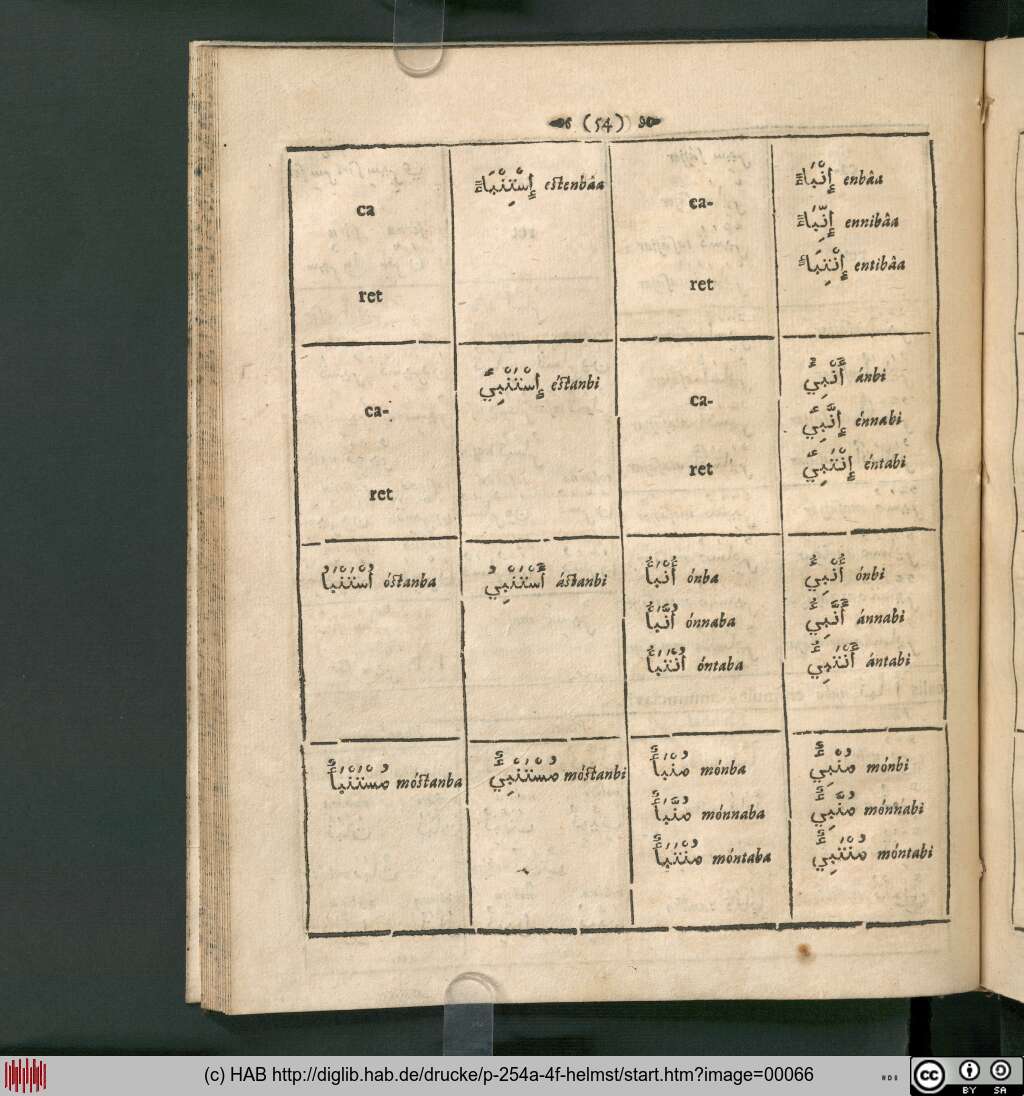 (54)
ca
ret
إِسْتِنْبَاءً estenbâa
ca-
ret
إِنْبَاءً enbâa
إِنِّبَاءً ennibâa
إِنْتِبَاءً entibâa
ca-
ret
إِسْتَنْبِئْ éstanbi
ca-
ret
أَنْبِئْ ánbi
إِنَّبِئْ énnabi
إِنْتَبِئْ éntabi
أُسْتَنْبَأُ óstanba
أَسْتَنْبِئُ ástanbi
أُنْبَأُ ónba
أُنَّبَأُ ónnaba
أُنْتَبَأُ óntaba
أُنْبِئُ ónbi
أَنَّبِئُ ánnabi
أَنْتَبِئُ ántabi
مُسْتَنْبَأٌ móstanba
مُسْتَنْبِئٌ móstanbi
مُنْبَأٌ mónba
مُنَّبَأٌ mónnaba
مُنْتَبَأٌ móntaba
مُنْبِئٌ mónbi
مُنَّبِئٌ mónnabi
مُنْتَبِئٌ móntabi
(c) HAB http://diglib.hab.de/drucke/p-254a-4f-helmst/start.htm?image=00066
cc
BY SA